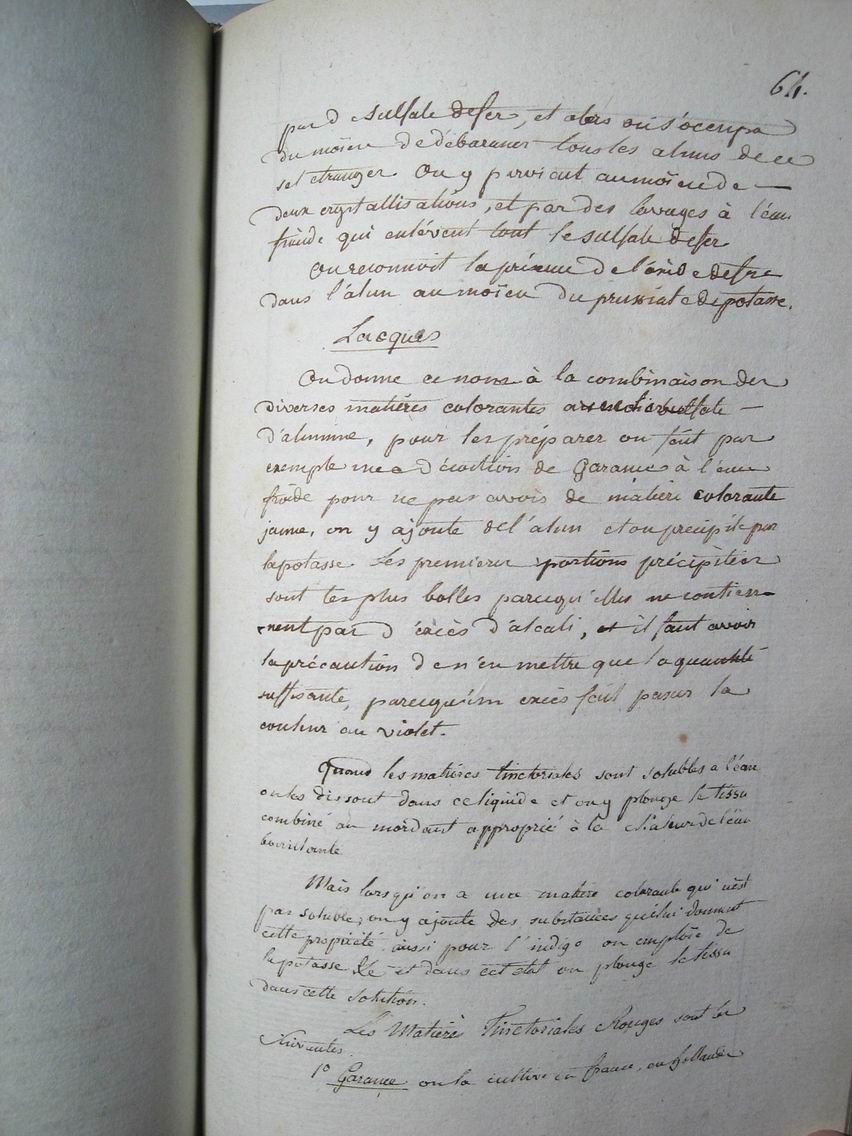 64.
pas de sulfate de fer, et alors on s'occupa
du moïen de débarasser tous les aluns de ce
sel etranger. On y parvient au moïen de —
deux crystallisations, et par des lavages à l'eau
froide qui enlévent tout le sulfate de fer
On reconnoit la présence de l'oxide de fer
dans l'alun au moïen du prussiate de potasse.
Lacques
On donne ce nom à la combinaison des
diverses matières colorantes avec le sulfate —
d'alumine, pour les préparer on fait par
exemple une décoction de Garance à l'eau
froide pour ne pas avoir de matière colorante
jaune, on y ajoute de l'alun et on précipite par
la potasse. Les premieres portions précipitées
sont les plus belles parcequ'elles ne contien-
-nent pas d'éxcès d'alcali, et il faut avoir
la précaution de n'en mettre que la quantité
suffisante, parcequ'un excès fait passer la
couleur au violet.
Quand les matières tinctoriales sont solubles à l'eau
on les dissout dans ce liquide et on y plonge le tissu
combiné au mordant approprié à la chaleur de l'eau
bouillante
Mais lorsqu'on a une matière colorante qui n'est
pas soluble, on y ajoute des substances qui lui donnent
cette propriété aussi pour l'indigo on emploie de
la potasse &c et dans cet etat on plonge le tissu
dans cette solution.
Les Matières Tinctoriales Rouges sont les
Suivantes.
1° Garance on la cultive en france, en hollande